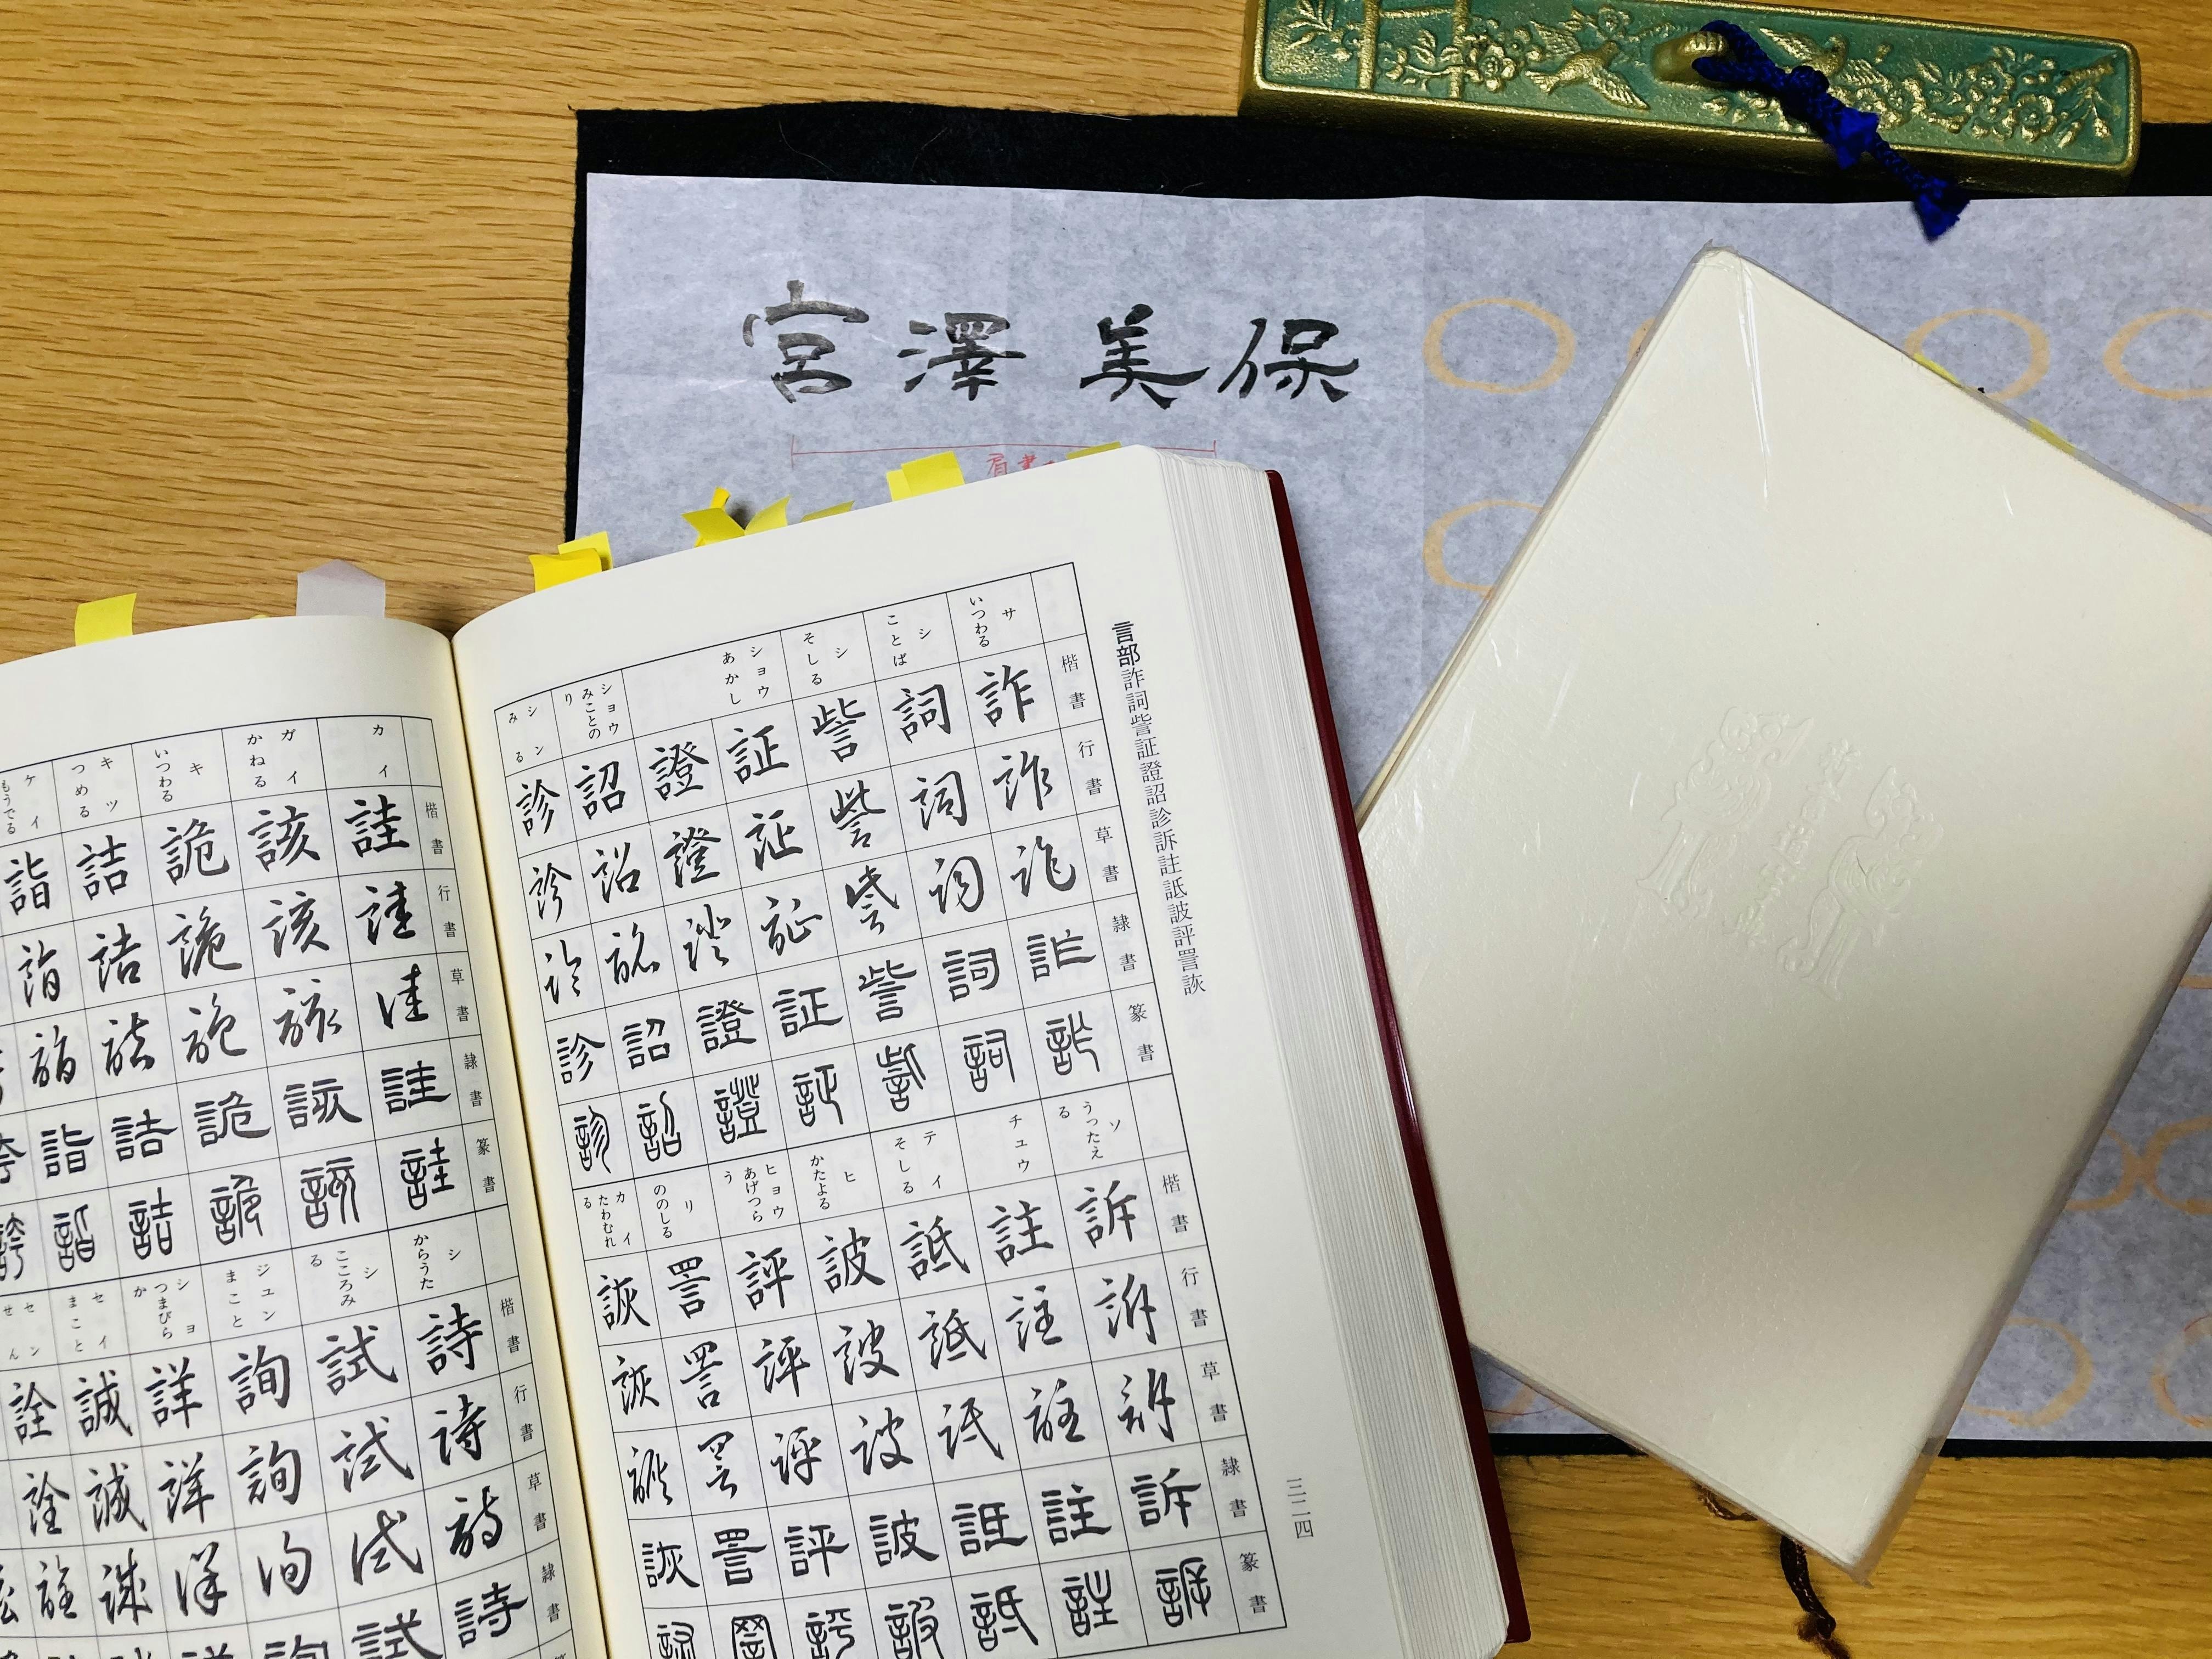 宮澤 美保
肩書
言部 詐詞訾証證詔診訴註詆詖評詈詼
楷書 行書 草書 隷書 篆書
サ いつわる 詐 詐 詐 詐 詐
シ ことば 詞 詞 詞 詞 詞
シ そしる 訾 訾 訾 訾 訾
ショウ あかし 証 証 証 証 証
證 證 證 證 證
ショウ みことのり 詔 詔 詔 詔 詔
シン みる 診 診 診 診 診
楷書 行書 草書 隷書 篆書
ソ うったえる 訴 訴 訴 訴 訴
チュウ 註 註 註 註 註
テイ そしる 詆 詆 詆 詆 詆
ヒ かたよる 詖 詖 詖 詖 詖
ヒョウ あげつらう 評 評 評 評 評
リ ののしる 詈 詈 詈 詈 詈
カイ たわむれる 詼 詼 詼 詼 詼
三二四
楷書 行書 草書 隷書 篆書
カイ 詿 詿 詿 詿 詿
ガイ かねる 該 該 該 該 該
キ いつわる 詭 詭 詭 詭 詭
キツ つめる 詰 詰 詰 詰 詰
ケイ もうでる 詣 詣 詣 詣 詣
誇 誇
楷書 行書 草書 隷書
シ からうた 詩 詩 詩 詩
シ こころみる 試 試 試 試
ジュン まこと 詢 詢 詢 詢
ショ つまびらか 詳 詳 詳 詳
セイ まこと 誠 誠 誠
セン せん 詮 詮 詮